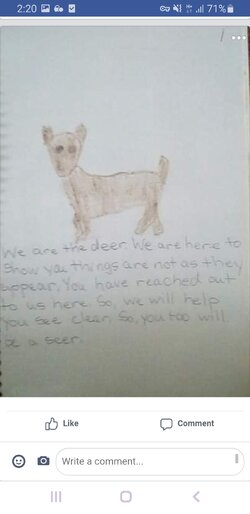 2:20
71%
We are the deer. We are here to
show you things are not as they
appear. You have reached out
to us here. So, we will help
you see clear. So, you too will
be a seer.
Like
Comment
Write a comment...